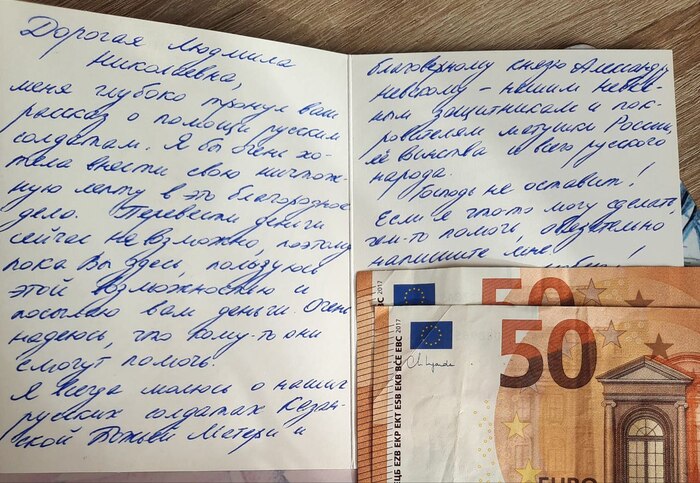 Дорогая Людмила
Николаевна,
меня глубоко тронул ваш
рассказ о помощи русским
солдатам. Я бы очень хо-
тела внести свою ничтож-
ную лепту в это благородное
дело. Перевести деньги
сейчас невозможно, поэтому
пока Вы здесь, пользуюсь
этой возможностью и
посылаю вам деньги. Очень
надеюсь, что кому-то они
смогут помочь.
Я всегда молюсь о наших
русских солдатах Казан-
ской Божьей Матери и
благоверному князю Александру
Невскому – нашим
защитникам и пок-
ровителям матушки России,
её воинства и всего русского
народа.
Господь не оставит!
Если я что-то могу сделать,
чем-то помочь, обязательно
напишите мне!
50
2017
50
2017
ECB EZB EKP EKT ESB EKB BCE EBC
EURO